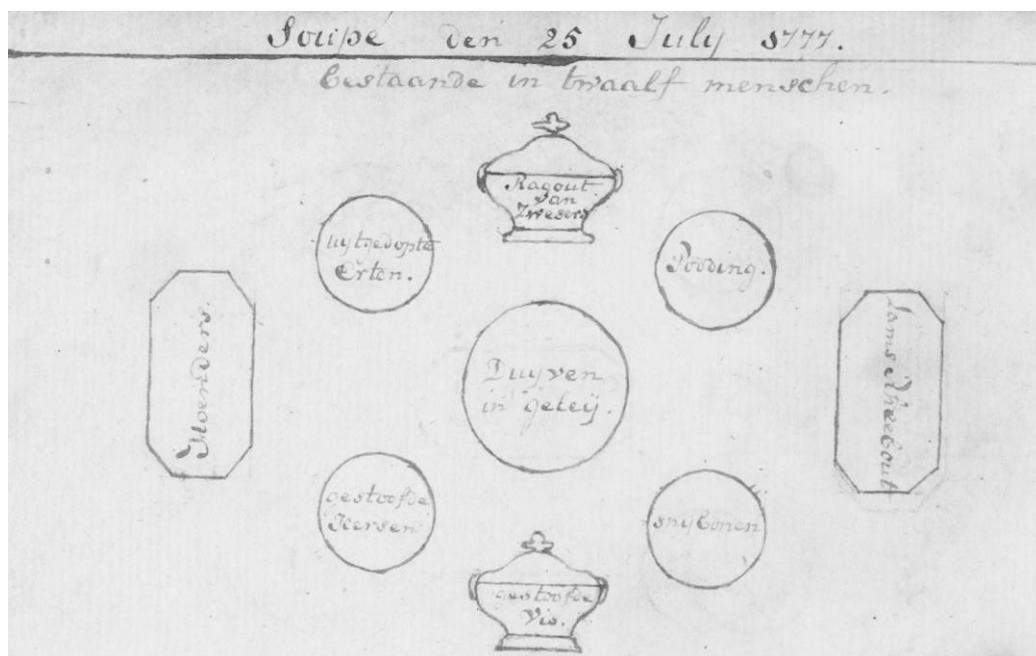 Soupé den 25 July 1777.
bestaande in twaalf menschen.
Ragout
van
Zwesers
uytgedopte
Erten.
Podding.
Hoenders.
Duyven
in geleij.
lams Achterbout
gestoofde
Kersen
snijbonen
gestoofde
Vis.